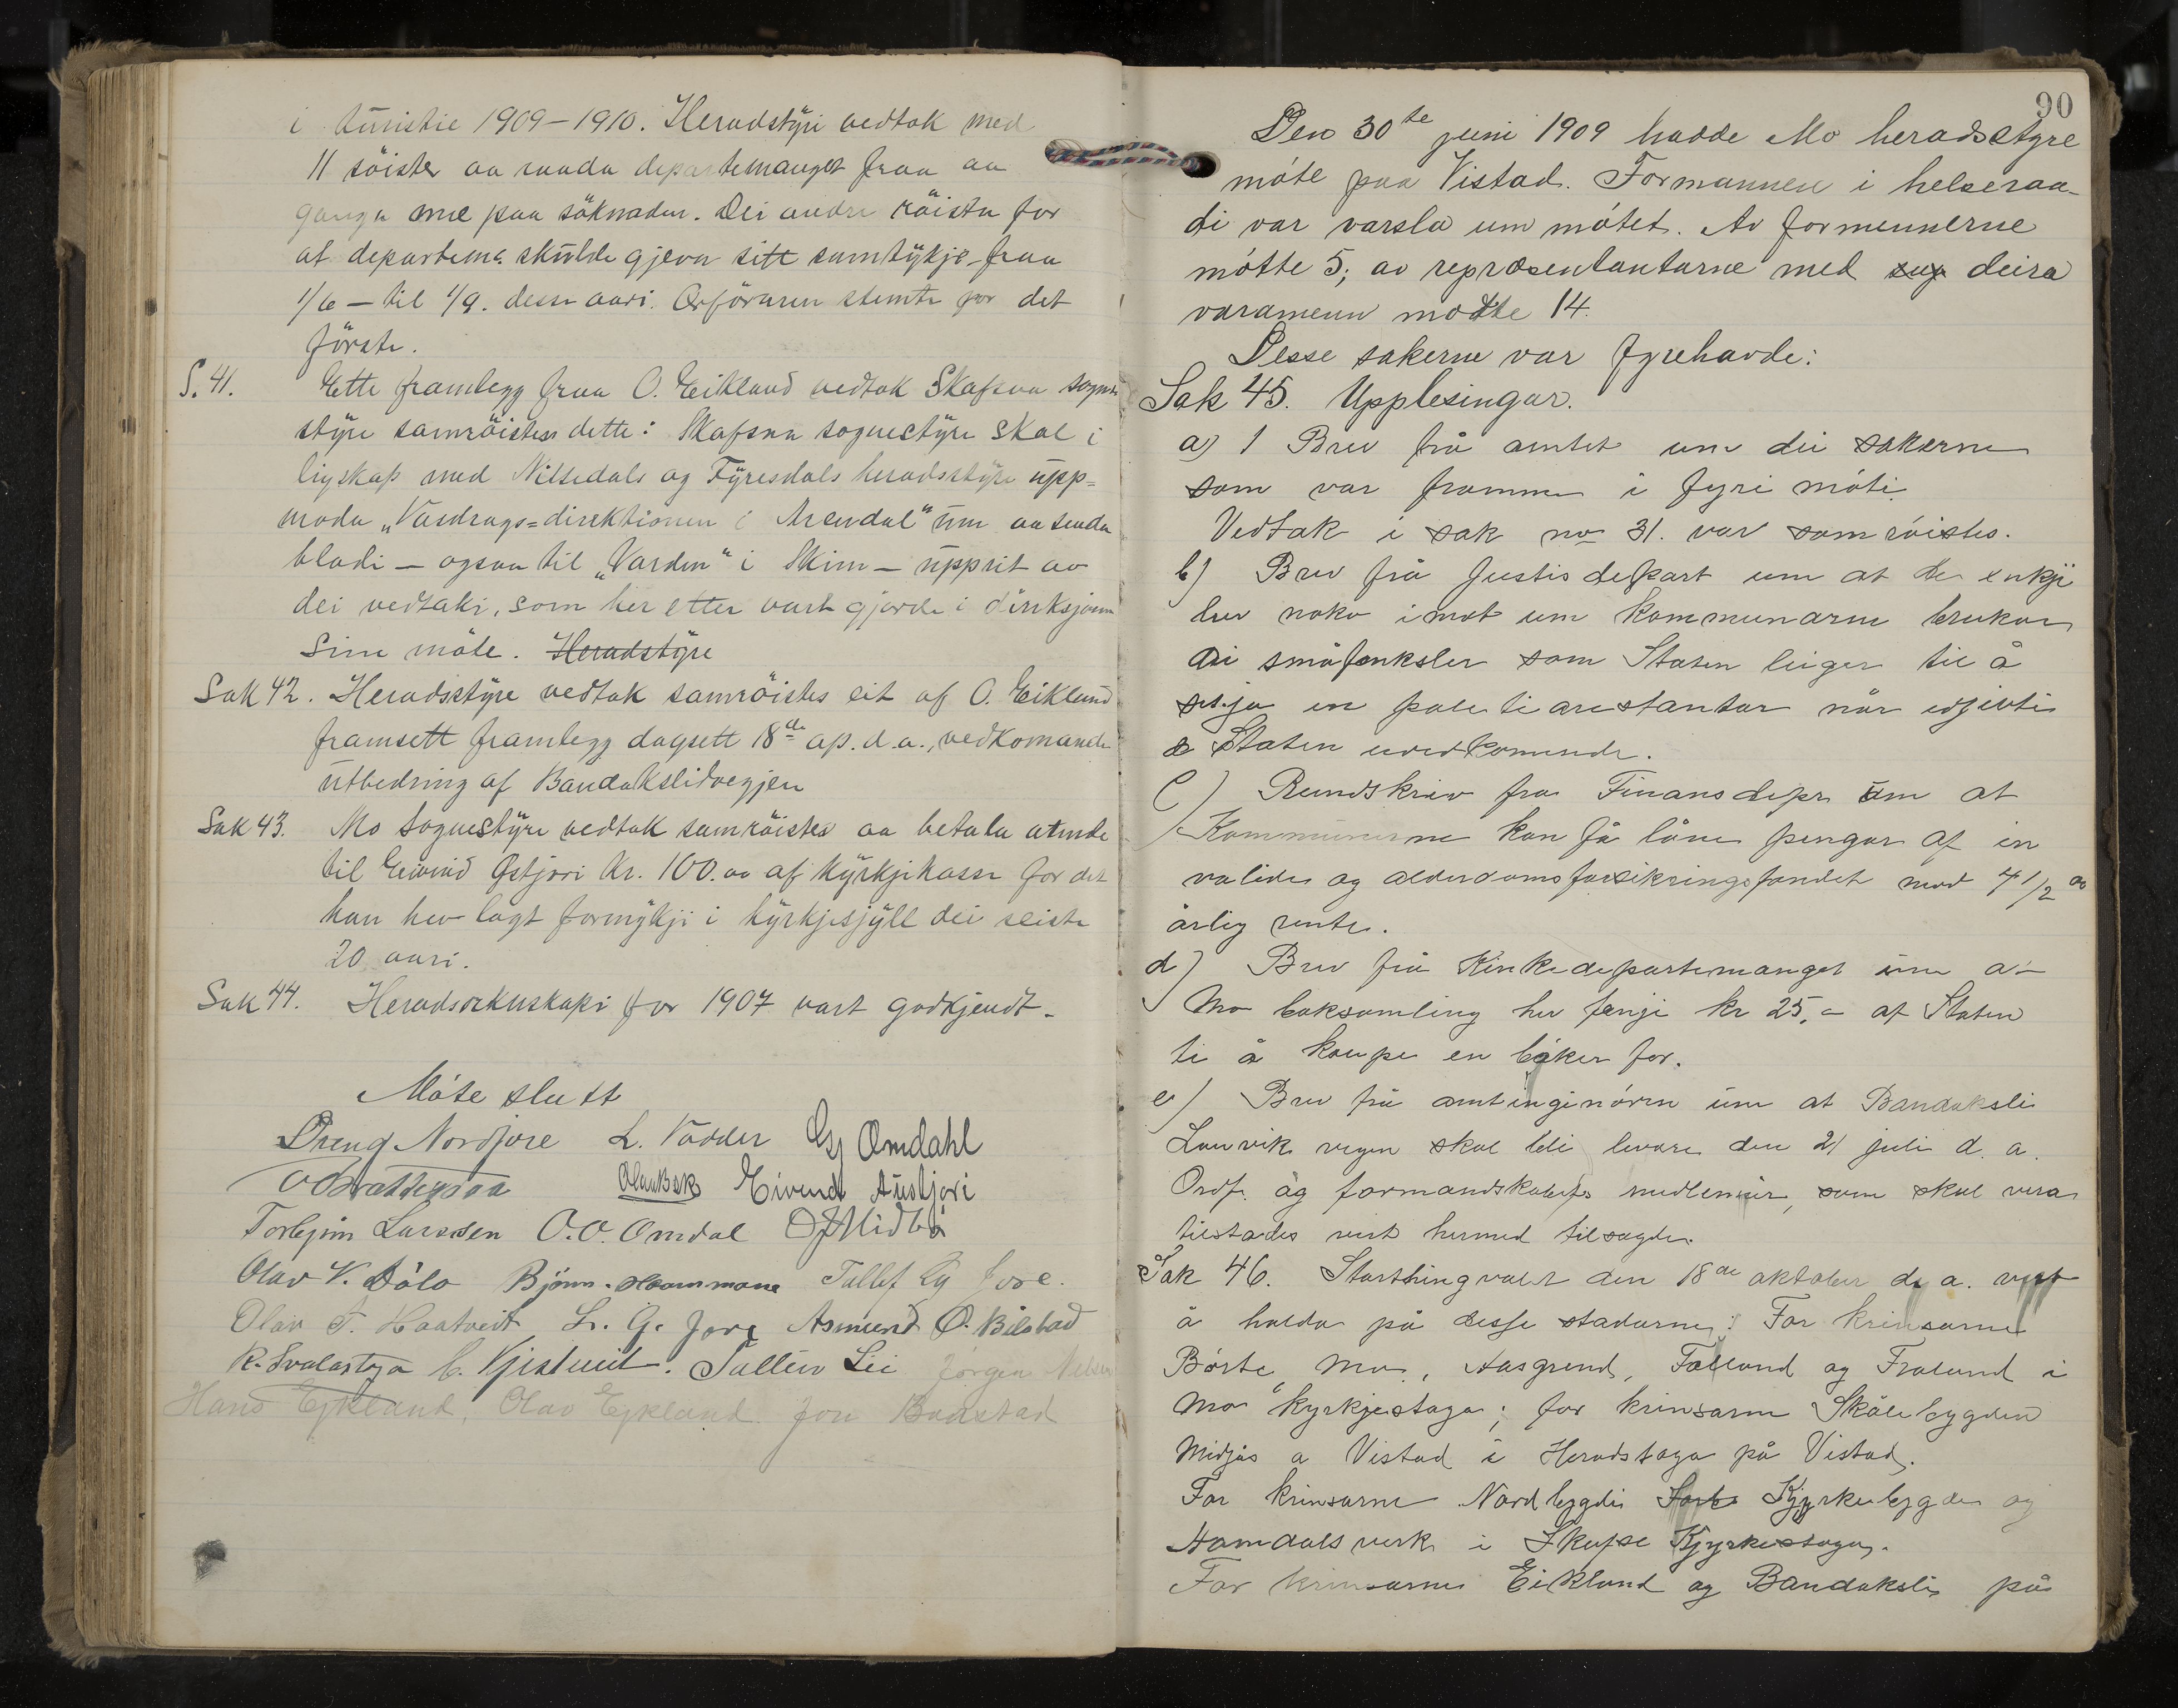 i 1909-1910. Heradstÿri vedtok med
11 röister aa raada departemanget fraa aa
ganga me paa söknaden. Dei andre röista for
at departem. skulde gjeva sitt samtÿkje fraa
1/6 - til 1/9. desse aari. Orföraren stemte for det
förste.
S. 41. Ette framlegg fraa O. Eikland vedtok Skafsaa sogne
stÿre samröistes dette: Skafsaa sognestÿre skal i
ligskap med Nissedals og Fÿresdals heradsstÿre üpp=
moda „Vasdrags=direktionen i Arendal" üm aa senda
bladi - ogsaa til „Varden" i Skien - üpprit av
dei vedtaki, som her etter vart gjorde i direksjonen
sine möte. Heradstÿre
Sak 42. Heradsstÿre vedtok samröistes eit af O. Eikland
framsett framlegg dagsett 18de ap. d.a., vedkomande
ütbedring af Bandakslidvegjen
Sak 43. Mo sognestÿre vedtok samröistes aa betala atende
til Eivind Östjori Kr. 100.oo af kÿrkjekassa for det
han hev lagt formÿkji i kÿrkjesjÿll dei seiste
20 aari.
Sak 44. Heradsrekneskapi for 1907 vart godkjendt.
Móte slutt
Dreng Nordjore L. Vadder Gj Omdahl
O Brattestaa Olav Bek Eivind Aüstjori
Torbjörn Larssen O.O. Omdal O J Midbö
Olav V. Dölo Björn Hommane Tallef Gj Jore.
Olav T. Haatveit L. G. Jore Asmund O. Bilstad
K. Svalastoga C. Kjistveit. Tallev Lii Jörgen Nelsen
Hans Eykland, Olav Eykland Jon Baastad
90
Den 30te juni 1909 hadde Mo heradsstyre
móte paa Vistad. Formannen i helseraa-
di var varsla um mótet. Av formennerne
mótte 5; av repræsentantarne med sup deira
varamenn motte 14.
Desse sakerne var fyrehavde:
Sak 45. Upplesingar.
a) 1 Brev frå amtet um dei sakerne
som var framme i fyri móti
Vedtak i sak no 31. var samróistes.
b) Brev frå Justisdepart um at de inkji
hev noko imot um kommunarne brukar
di småfenksler som Staten leiger til å
setja in politiarestantar når utgivti
e Staten uvedkomende.
c) Rundskriv fra Finansdepr üm at
Kommünerne kan få låne pengar af in
valide og alderdomsforsikringsfondet mod 4 1/2 %
årlig rente.
d) Brev frå Kirkedepartemanget üm a-
Mo boksamling hev fenji kr 25,- af Staten
ti å kaupe en bøker for.
e) Brev frå amtingenióren üm at Bandaksli
Laurvik vegen skal bli levere den 21 juli d. a.
Ordf. åg formandskabets medlemmer, som skal vera
tilstades vert hermed tilsagde.
Sak 46. Storthingvalet den 18de oktober d. a. vert
å halda på desse stadarne: For krinsarne
Bórte, Mo, Aasgrend, Felland og Frolund i
Mo kyrkjestoga; for krinsarne Skålebygden
Midjås a Vistad i Heradstoga på Vistad.
For krinsarne Nordbygdi Kjyrkebygden og
Aamdals verk i Skafse Kjyrkestoga.
For krinsarne Eikland og Bandaksli på